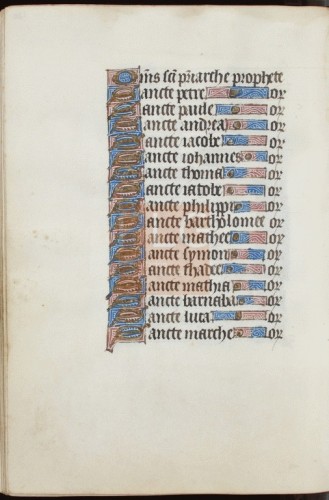 Om̄s scī pr̄iarche prophete
Sancte petre or
Sancte paule or
Sancte andrea or
Sancte iacobe or
Sancte iohannes or
Sancte thoma or
Sancte iacobe or
Sancte philippe or
Sancte bartholomee or
Sancte mathee or
Sancte symon or
Sancte thadee or
Sancte mathia or
Sancte barnaba or
Sancte luca or
Sancte marche or